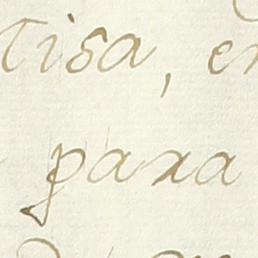 tisa, e
para